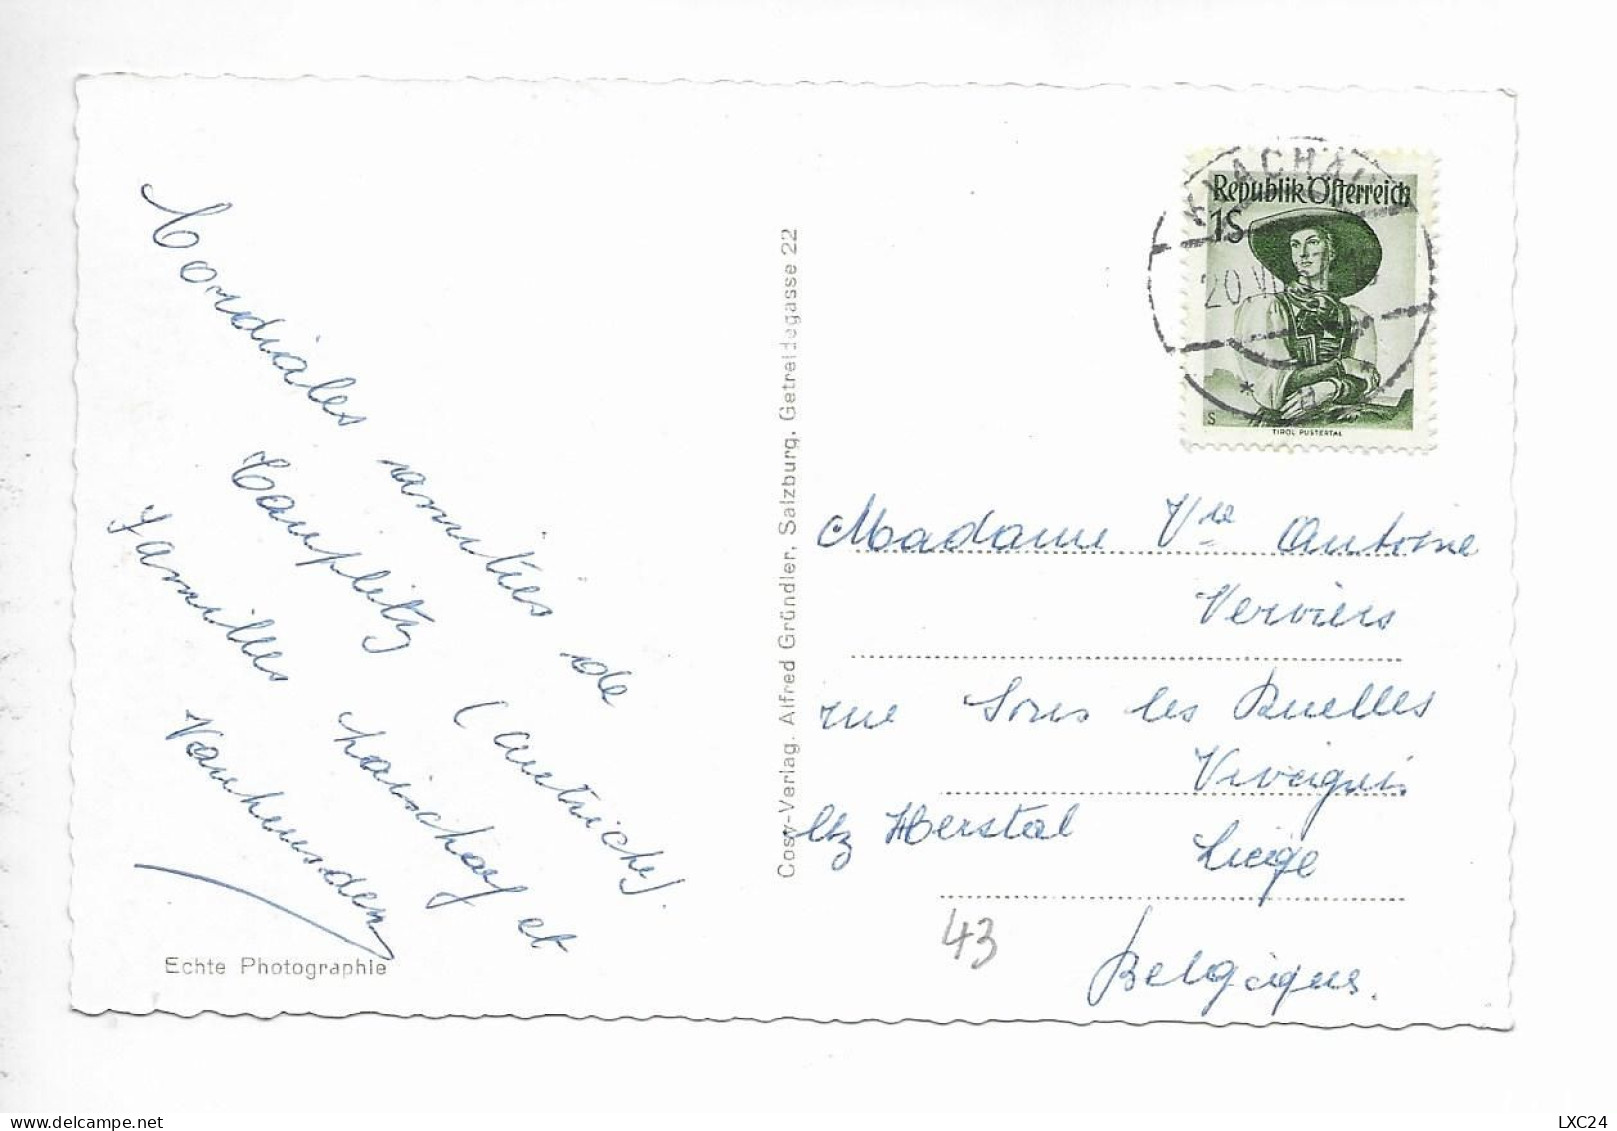 Cordiales amitiés de
Tauplitz (Autriche).
Familles et
Vanheusden
Echte Photographie
Cosy-Verlag. Alfred Gründler, Salzburg, Getreidegasse 22
Republik Österreich
1S
20.VI
S
TIROL PUSTERTAL
Madame Vve Antoine
Verviers
rue Sous les Ruelles
Vivegnis
lez Herstal Liège
Belgique.
43
LXC24